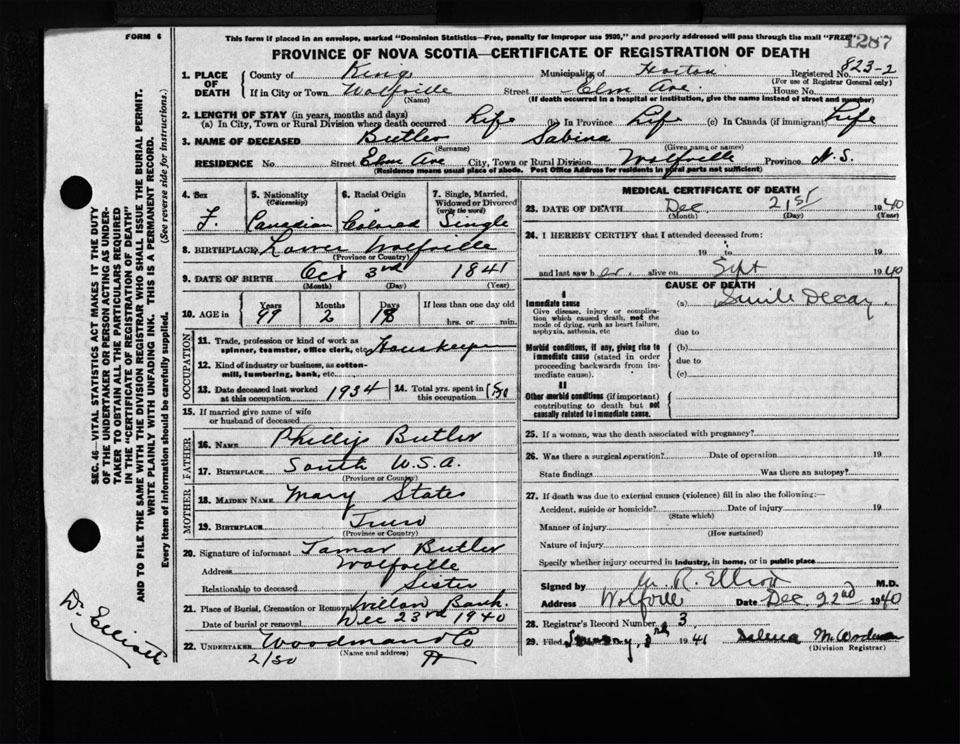 FORM 6
This form if placed in an envelope, marked "Dominion Statistics—Free, penalty for improper use $300," and properly addressed will pass through the mail "FREE"
1287
PROVINCE OF NOVA SCOTIA—CERTIFICATE OF REGISTRATION OF DEATH
823-2
1. PLACE OF DEATH
County of Kings Municipality of Horton Registered No.
(For use of Registrar General only)
If in City or Town Wolfville Street Elm Ave. House No.
(Name) (If death occurred in a hospital or institution, give the name instead of street and number)
2. LENGTH OF STAY (in years, months and days)
(a) In City, Town or Rural Division where death occurred Life (b) In Province Life (c) In Canada (if immigrant) Life
3. NAME OF DECEASED Butler Sabina
(Surname) (Given name or names)
RESIDENCE No. Street Elm Ave City, Town or Rural Division Wolfville Province N.S.
(Residence means usual place of abode. Post Office Address for residents in rural parts not sufficient)
4. Sex F.
5. Nationality (Citizenship) Canadian
6. Racial Origin Colored
7. Single, Married, Widowed or Divorced (write the word) Single
8. BIRTHPLACE Lower Wolfville
(Province or Country)
9. DATE OF BIRTH Oct 3rd 1841
(Month) (Day) (Year)
10. AGE in Years 99 Months 2 Days 18 If less than one day old
hrs. or min.
OCCUPATION
11. Trade, profession or kind of work as spinner, teamster, office clerk, etc. Housekeeper
12. Kind of industry or business, as cotton-mill, lumbering, bank, etc.
13. Date deceased last worked at this occupation 1934
14. Total yrs. spent in this occupation 50
15. If married give name of wife or husband of deceased
FATHER
16. NAME Phillip Butler
17. BIRTHPLACE South U.S.A.
(Province or Country)
MOTHER
18. MAIDEN NAME Mary States
19. BIRTHPLACE Truro
(Province or Country)
20. Signature of informant Tamar Butler
Address Wolfville
Relationship to deceased Sister
21. Place of Burial, Cremation or Removal Willow Bank.
Date of burial or removal Dec 23rd 1940
22. UNDERTAKER Woodman & Co
(Name and address)
MEDICAL CERTIFICATE OF DEATH
23. DATE OF DEATH Dec 21st 1940
(Month) (Day) (Year)
24. I HEREBY CERTIFY that I attended deceased from:
19 to 19
and last saw her alive on Sept 1940
CAUSE OF DEATH
I
Immediate cause (a) Senile Decay.
Give disease, injury or complication which caused death, not the mode of dying, such as heart failure, asphyxia, asthenia, etc
due to
Morbid conditions, if any, giving rise to immediate cause (stated in order proceeding backwards from immediate cause).
(b)
due to
(c)
II
Other morbid conditions (if important) contributing to death but not causally related to immediate cause.
25. If a woman, was the death associated with pregnancy?
26. Was there a surgical operation? Date of operation 19
State findings Was there an autopsy?
27. If death was due to external causes (violence) fill in also the following:—
Accident, suicide or homicide? Date of injury 19
(State which)
Manner of injury
(How sustained)
Nature of injury
Specify whether injury occurred in industry, in home, or in public place
Signed by M. R. Elliott M.D.
Address Wolfville Date Dec. 22nd 1940
28. Registrar's Record Number 3.
29. Filed January 3rd 1941 M. Woodman
(Division Registrar)
SEC. 46—VITAL STATISTICS ACT MAKES IT THE DUTY
OF THE UNDERTAKER OR PERSON ACTING AS UNDER-
TAKER TO OBTAIN ALL THE PARTICULARS REQUIRED
IN THE "CERTIFICATE OF REGISTRATION OF DEATH"
AND TO FILE THE SAME WITH THE DIVISION REGISTRAR WHO SHALL ISSUE THE BURIAL PERMIT.
WRITE PLAINLY WITH UNFADING INK. THIS IS A PERMANENT RECORD.
Every item of information should be carefully supplied. (See reverse side for instructions.)
Dr. Elliott